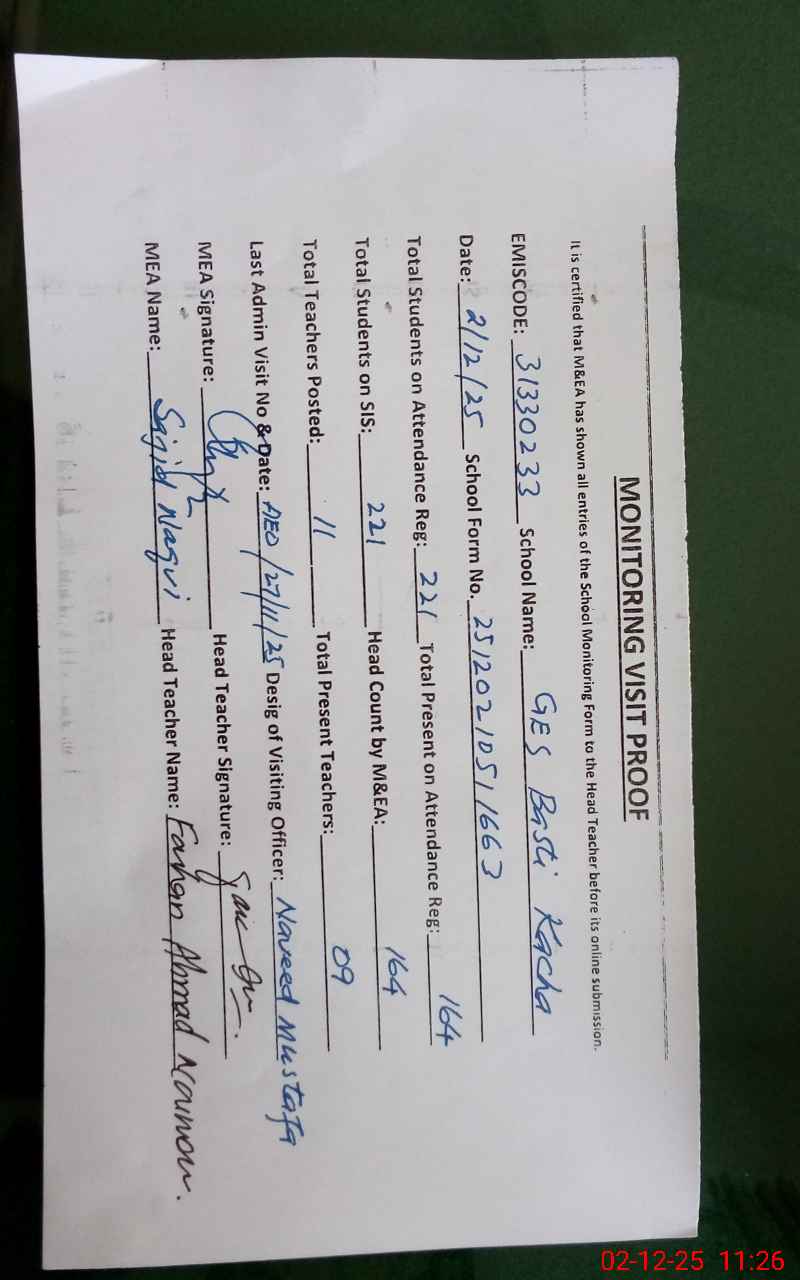 MONITORING VISIT PROOF
It is certified that M&EA has shown all entries of the School Monitoring Form to the Head Teacher before its online submission.
EMISCODE: 31330233 School Name: GES Basti Kacha
Date: 2/12/25 School Form No. 25120210511663
Total Students on Attendance Reg: 221 Total Present on Attendance Reg: 164
Total Students on SIS: 221 Head Count by M&EA: 164
Total Teachers Posted: 11 Total Present Teachers: 09
Last Admin Visit No & Date: AEO/27/11/25 Desig of Visiting Officer: Naveed Mustafa
MEA Signature: Head Teacher Signature:
MEA Name: Sajid Naqvi Head Teacher Name: Farhan Ahmad
02-12-25 11:26